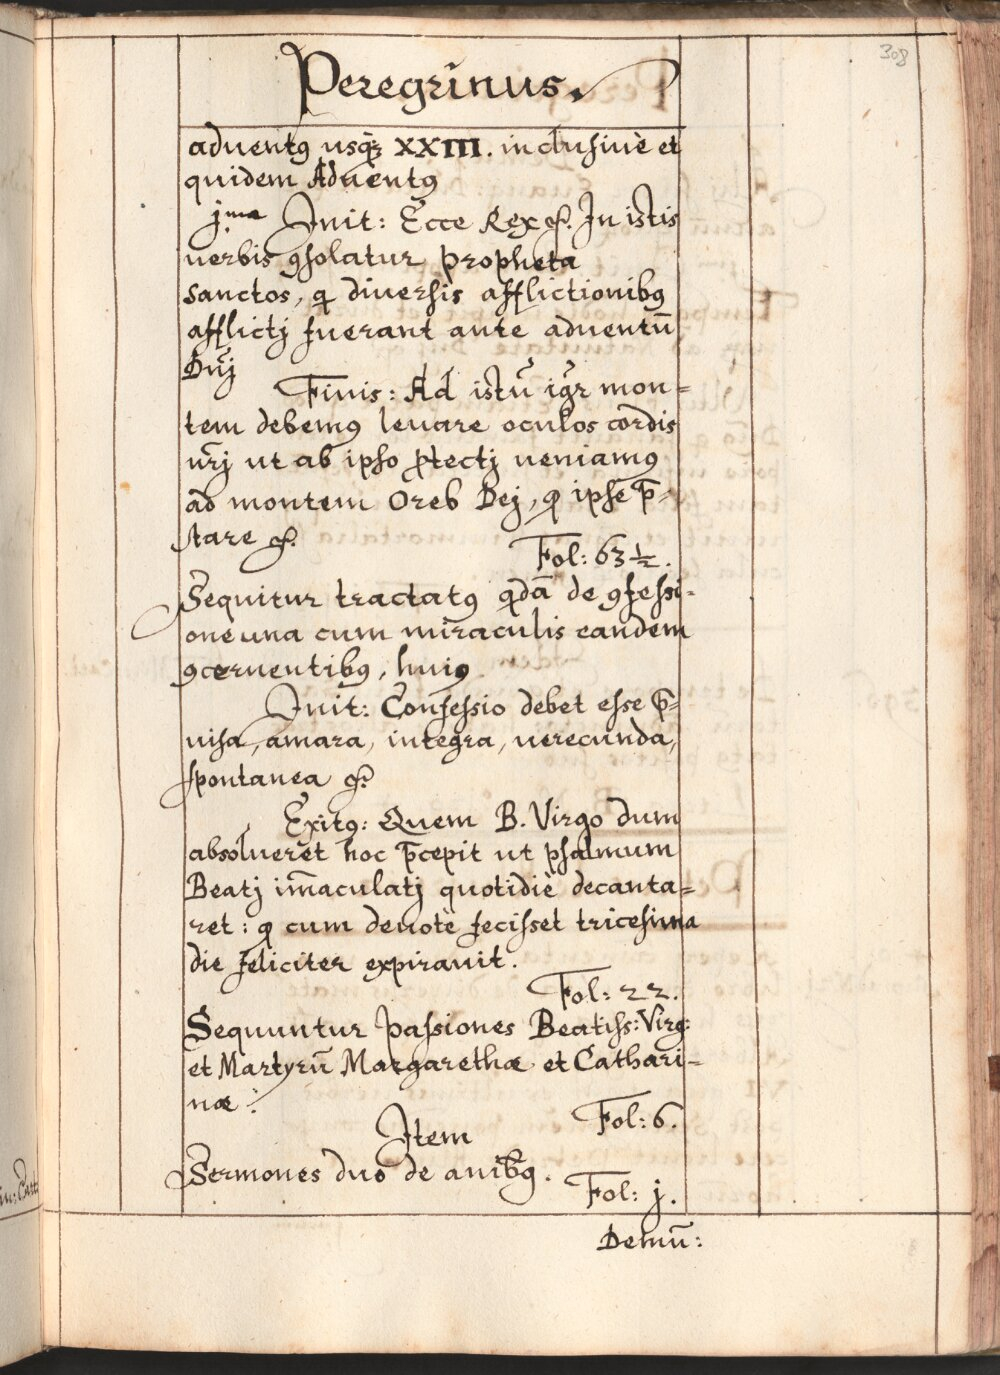 308
Peregrinus.
aduentꝯ usq̃ꝫ XXIII. inclusiuè et
quidem Aduentꝯ
j.ma Init: Ecce Rex &. In istis
uerbis ꝯsolatur propheta
Sanctos, q̄ diuersis afflictionibꝯ
afflictj fuerant ante aduentū
Dnj̄
Finis: Ad istū igr̄ mon=
tem debemꝯ leuare oculos cordis
nrj̄ ut ab ipso ꝓtectj ueniamꝯ
ad montem Oreb Dej, qͦ ipse p̄=
stare &.
Fol: 63 ½.
Sequitur tractatꝯ qͦdā de ꝯfessi-
one una cum miraculis eandem
ꝯcernentibꝯ, huiꝯ
Init: Confessio debet esse p̄=
uisa, amara, integra, uerecunda,
spontanea &.
Exitꝯ: Quem B. Virgo dum
absolueret hoc p̄cepit ut psalmum
Beatj im̄aculatj quotidiè decanta=
ret: qͦ cum deuotè fecisset tricesima
die feliciter expirauit.
Fol: 22.
Sequuntur passiones Beatiss: Virg:
et Martyrū Margarethæ et Cathari-
næ:
Fol: 6.
Item
Sermones duo de anib̄ꝯ.
Fol: j.
Demū: